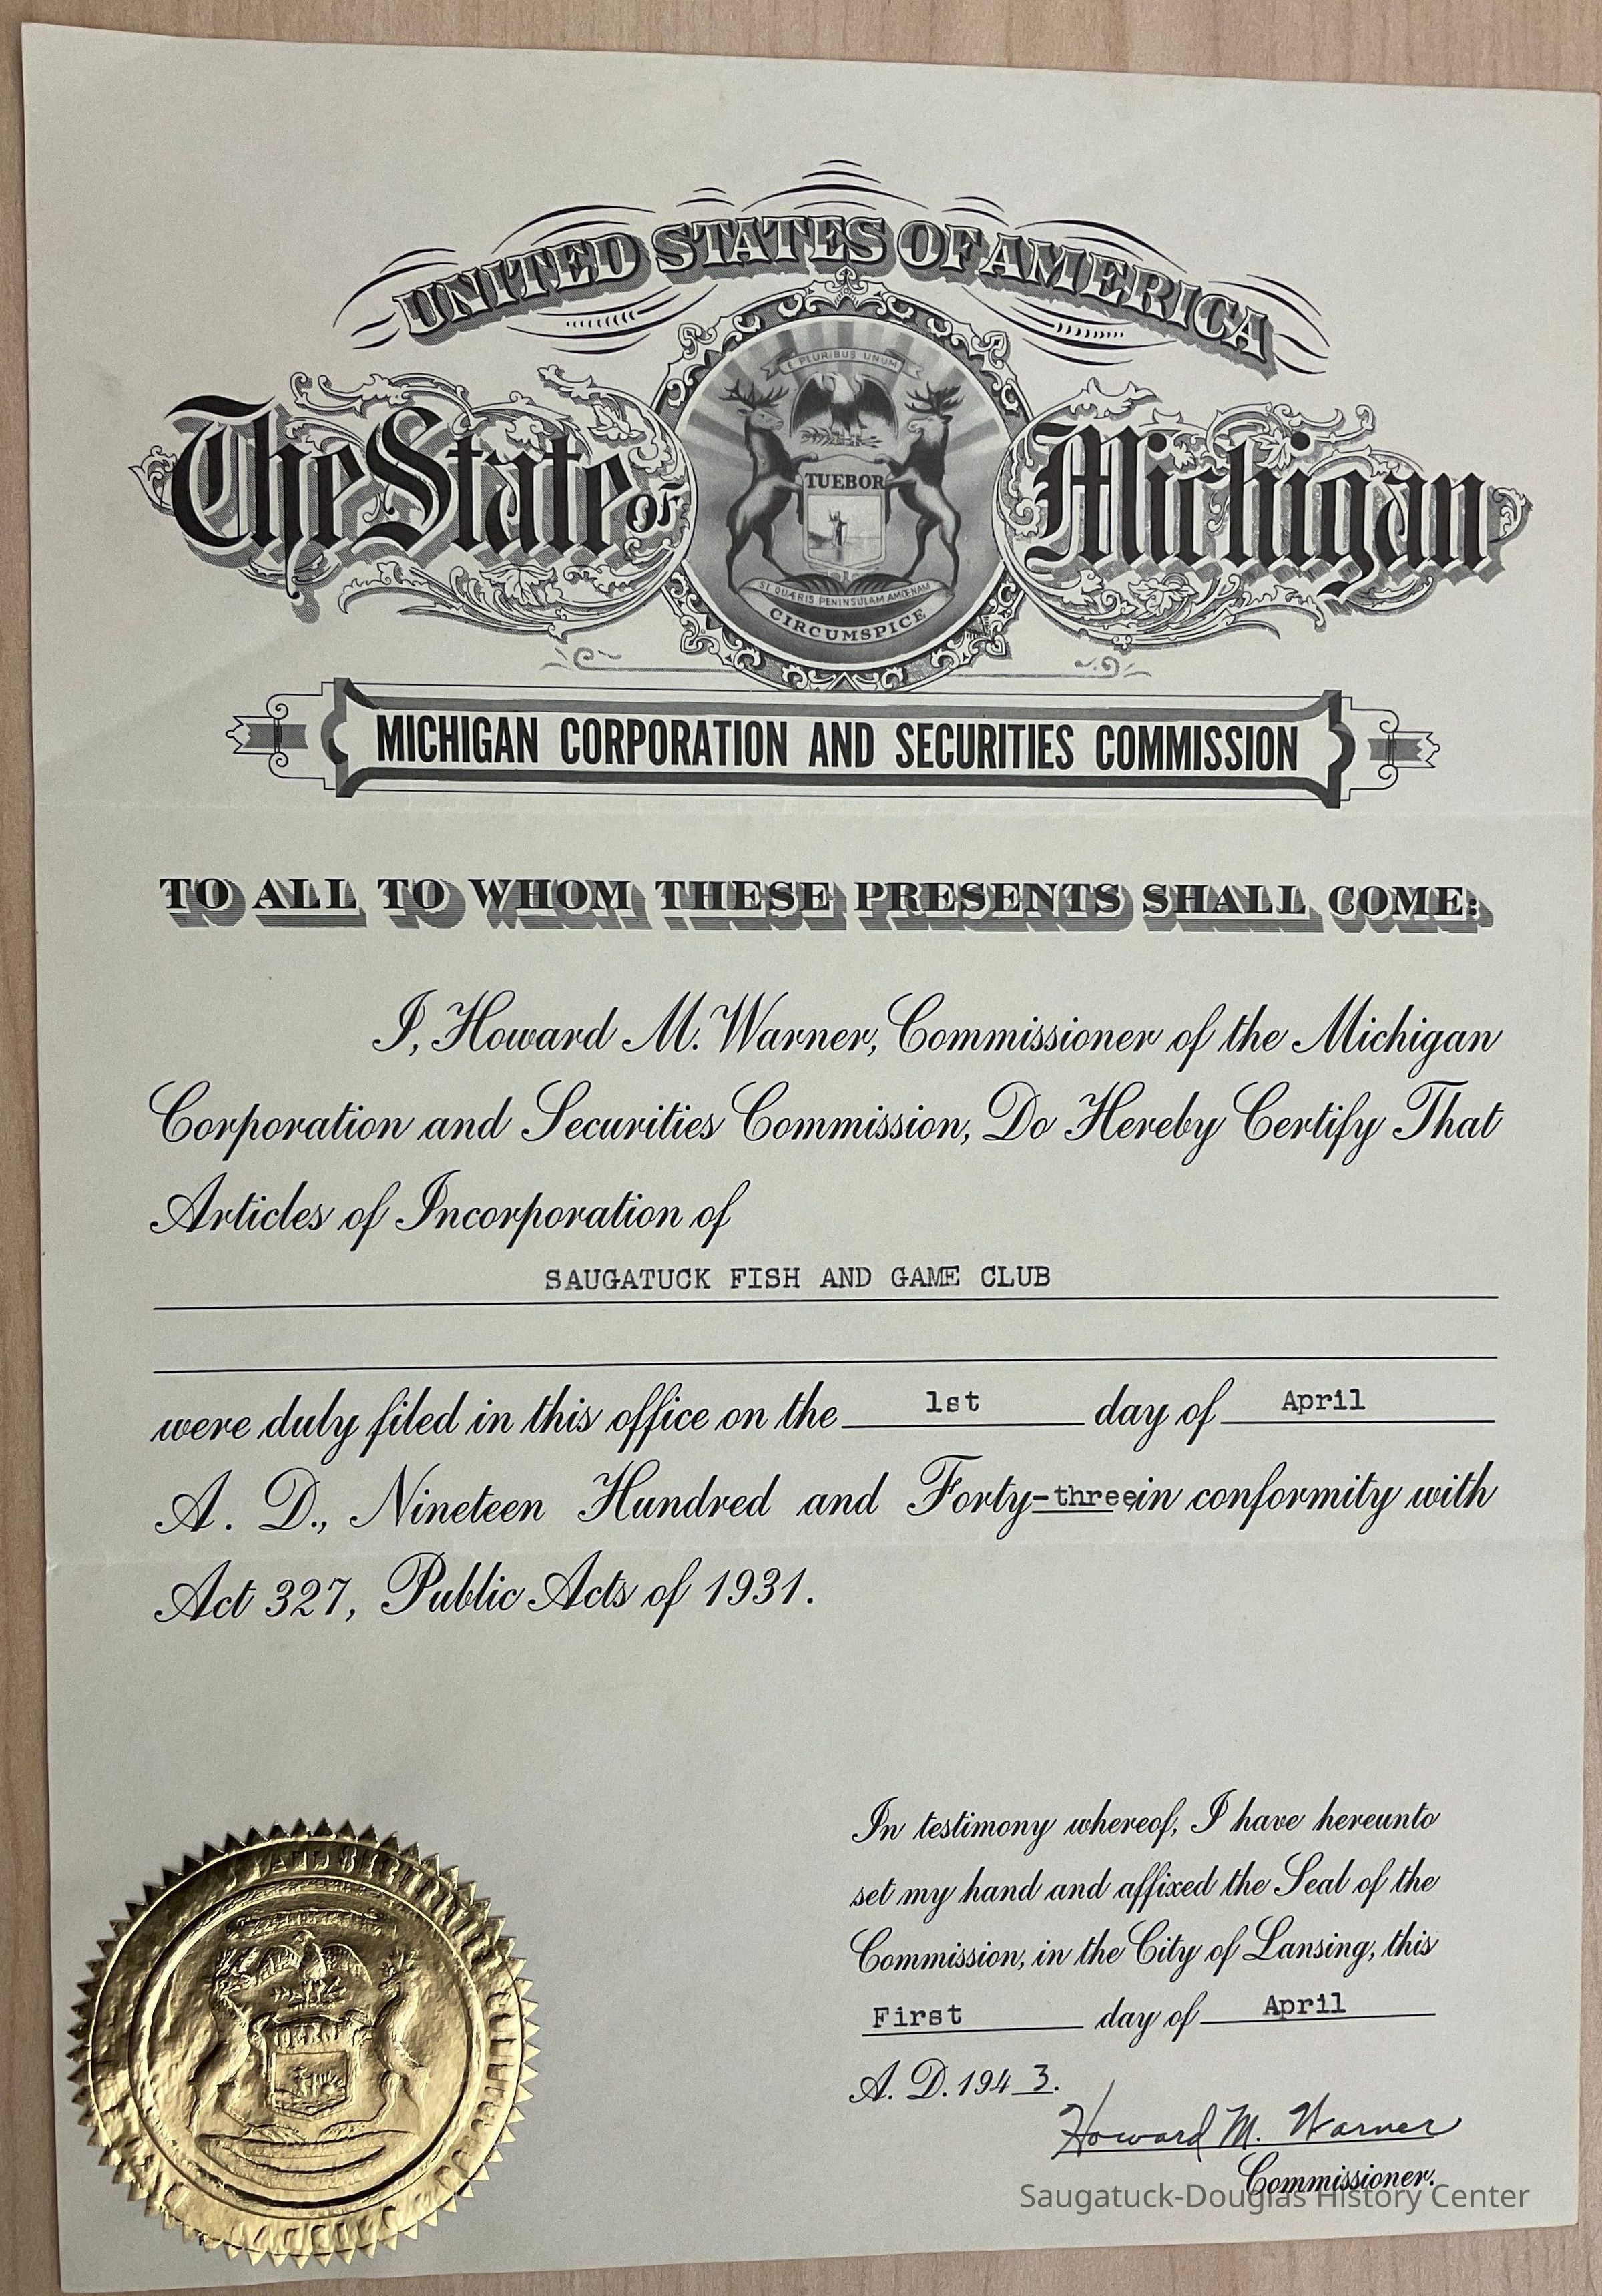 UNITED STATES OF AMERICA
The State of Michigan
E PLURIBUS UNUM
TUEBOR
SI QUÆRIS PENINSULAM AMŒNAM
CIRCUMSPICE
MICHIGAN CORPORATION AND SECURITIES COMMISSION
TO ALL TO WHOM THESE PRESENTS SHALL COME:
I, Howard M. Warner, Commissioner of the Michigan
Corporation and Securities Commission, Do Hereby Certify That
Articles of Incorporation of
SAUGATUCK FISH AND GAME CLUB
were duly filed in this office on the 1st day of April
A. D., Nineteen Hundred and Forty-three in conformity with
Act 327, Public Acts of 1931.
In testimony whereof, I have hereunto
set my hand and affixed the Seal of the
Commission, in the City of Lansing, this
First day of April
A. D. 194 3.
Howard M. Warner
Commissioner.
Saugatuck-Douglas History Center
AND SECURITIES